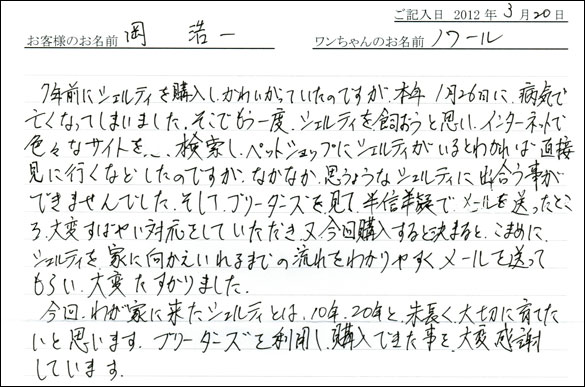 ご記入日 2012 年 3 月 20 日
お客様のお名前 岡 浩一 ワンちゃんのお名前 ノワール
7年前にシェルティを購入し、かわいがっていたのですが、本年 1月26日に、病気で
亡くなってしまいました。そこでもう一度、シェルティを飼おうと思い、インターネットで
色々なサイトを、検索し、ペットショップにシェルティがいるとわかれば直接
見に行くなどしたのですが、なかなか、思うようなシェルティに出合う事が
できませんでした。そして、ブリーダーズを見て、半信半疑で、メールを送ったとこ
ろ、大変すばやい対応をしていただき、又、今回購入すると決まると、こまめに、
シェルティを家に向かえいれるまでの流れをわかりやすくメールを送って
もらい、大変たすかりました。
今回、わが家に来たシェルティとは、10年、20年と、末長く大切に育てた
いと思います。ブリーダーズを利用し、購入できた事を、大変感謝
しています。